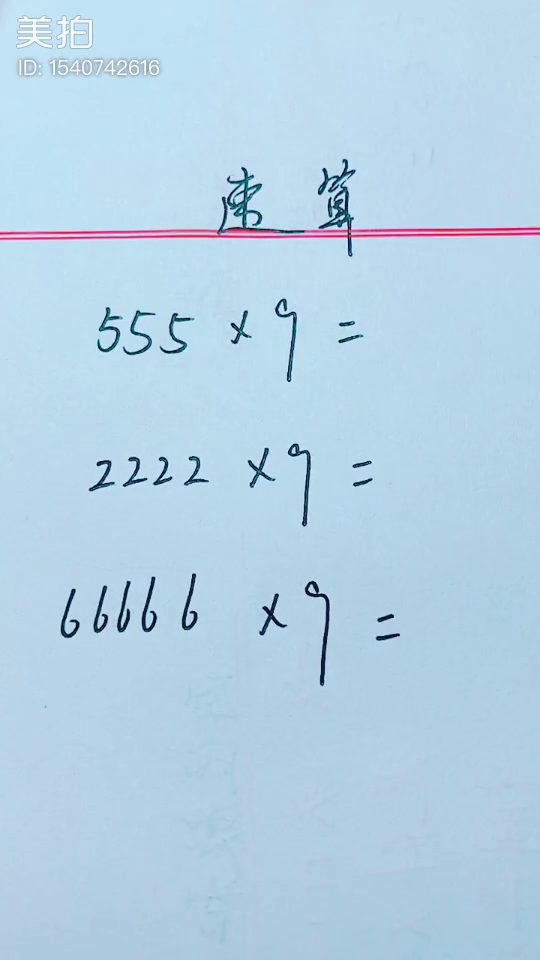 美拍
ID: 1540742616
速算
555 × 9 =
2222 × 9 =
66666 × 9 =